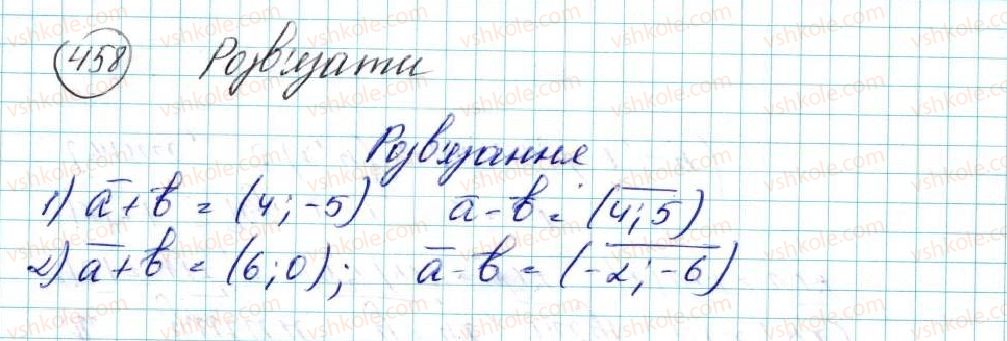 458 Розв'язати
Розв'язання
1) a̅ + b̅ = (4; -5) a̅ - b̅ = (4; 5)
2) a̅ + b̅ = (6; 0); a̅ - b̅ = (-2; -6)
vshkole.com